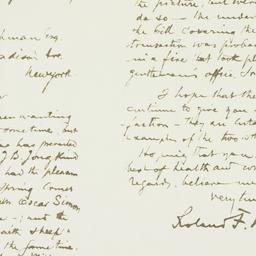 hman Esq.
adison Ave.
New York
en wanting
some time, but
as has prevented
J. B. Jongkind
had the pleasure
Spring comes
Oscar Simon,
- ; and the
with sheep"
the former time.
the picture, and
do so - the under
the bill covering the
transaction was probab
in a fire that took pl
gentleman's office, 
I hope that the
continue to give you
faction - they are
examples of the two
Hoping that you
best of health and
regards, believe me
very tru
Roland F.